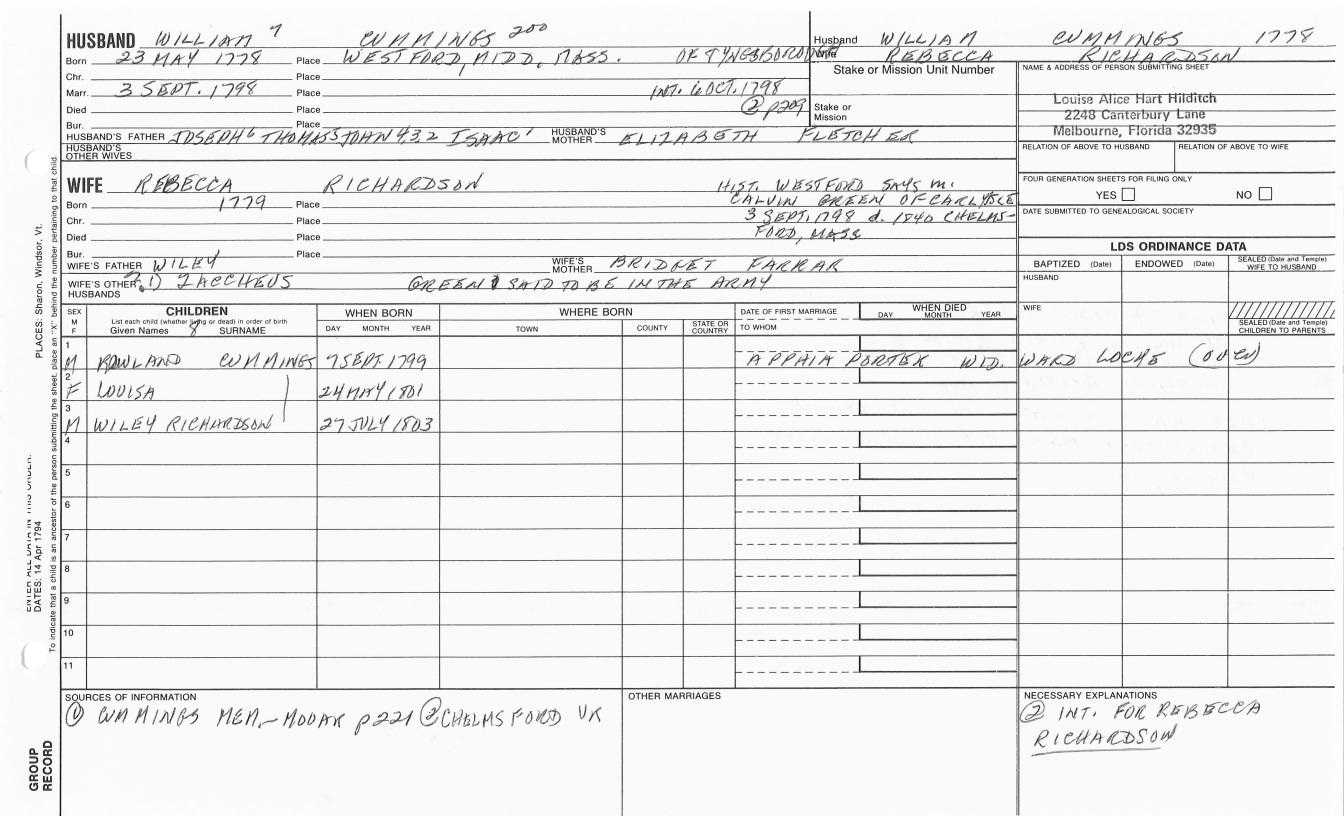 HUSBAND WILLIAM 7 CUMMINGS 200
Born 23 MAY 1778 Place WESTFORD, MIDD, MASS. OF TYNGSBORO
Chr. Place
Marr. 3 SEPT. 1798 Place INT. 6 OCT. 1798
Died Place ② p209
Bur. Place
HUSBAND'S FATHER JOSEPH 6 THOMAS 5 JOHN 4,3,2 ISAAC 1 HUSBAND'S MOTHER ELIZABETH FLETCHER
HUSBAND'S OTHER WIVES
Husband WILLIAM CUMMINGS 1778
Wife REBECCA RICHARDSON
Stake or Mission Unit Number
Stake or Mission
NAME & ADDRESS OF PERSON SUBMITTING SHEET
Louise Alice Hart Hilditch
2248 Canterbury Lane
Melbourne, Florida 32935
RELATION OF ABOVE TO HUSBAND RELATION OF ABOVE TO WIFE
FOUR GENERATION SHEETS FOR FILING ONLY
YES NO
DATE SUBMITTED TO GENEALOGICAL SOCIETY
WIFE REBECCA RICHARDSON HIST. WESTFORD SAYS m.
CALVIN GREEN OF CARLYSLE
Born 1779 Place 3 SEPT. 1798 d. 1840 CHELMS-
Chr. Place
Died Place FORD, MASS
Bur. Place
WIFE'S FATHER WILEY WIFE'S MOTHER BRIDGET FARRAR
WIFE'S OTHER HUSBANDS ?1) ZACCHEUS GREEN SAID TO BE IN THE ARMY
LDS ORDINANCE DATA
BAPTIZED (Date) ENDOWED (Date) SEALED (Date and Temple) WIFE TO HUSBAND
HUSBAND
WIFE
SEALED (Date and Temple) CHILDREN TO PARENTS
SEX M F CHILDREN WHEN BORN WHERE BORN DATE OF FIRST MARRIAGE WHEN DIED
List each child (whether living or dead) in order of birth
Given Names SURNAME DAY MONTH YEAR TOWN COUNTY STATE OR COUNTRY TO WHOM DAY MONTH YEAR
1 M ROWLAND CUMMINGS 7 SEPT. 1799 APPHIA PORTER WID. WARD LOCKE (OVER)
2 F LOUISA 24 MAY 1801
3 M WILEY RICHARDSON 27 JULY 1803
4
5
6
7
8
9
10
11
SOURCES OF INFORMATION
① CUMMINGS MEM.-MOOAR p221 ② CHELMSFORD VR
OTHER MARRIAGES
NECESSARY EXPLANATIONS
② INT. FOR REBECCA
RICHARDSON
PLACES: Sharon, Windsor, Vt.
To indicate that a child is an ancestor of the person submitting the sheet, place an "X" behind the number pertaining to that child.
ENTER ALL DATA IN THIS ORDER:
DATES: 14 Apr 1794
GROUP
RECORD